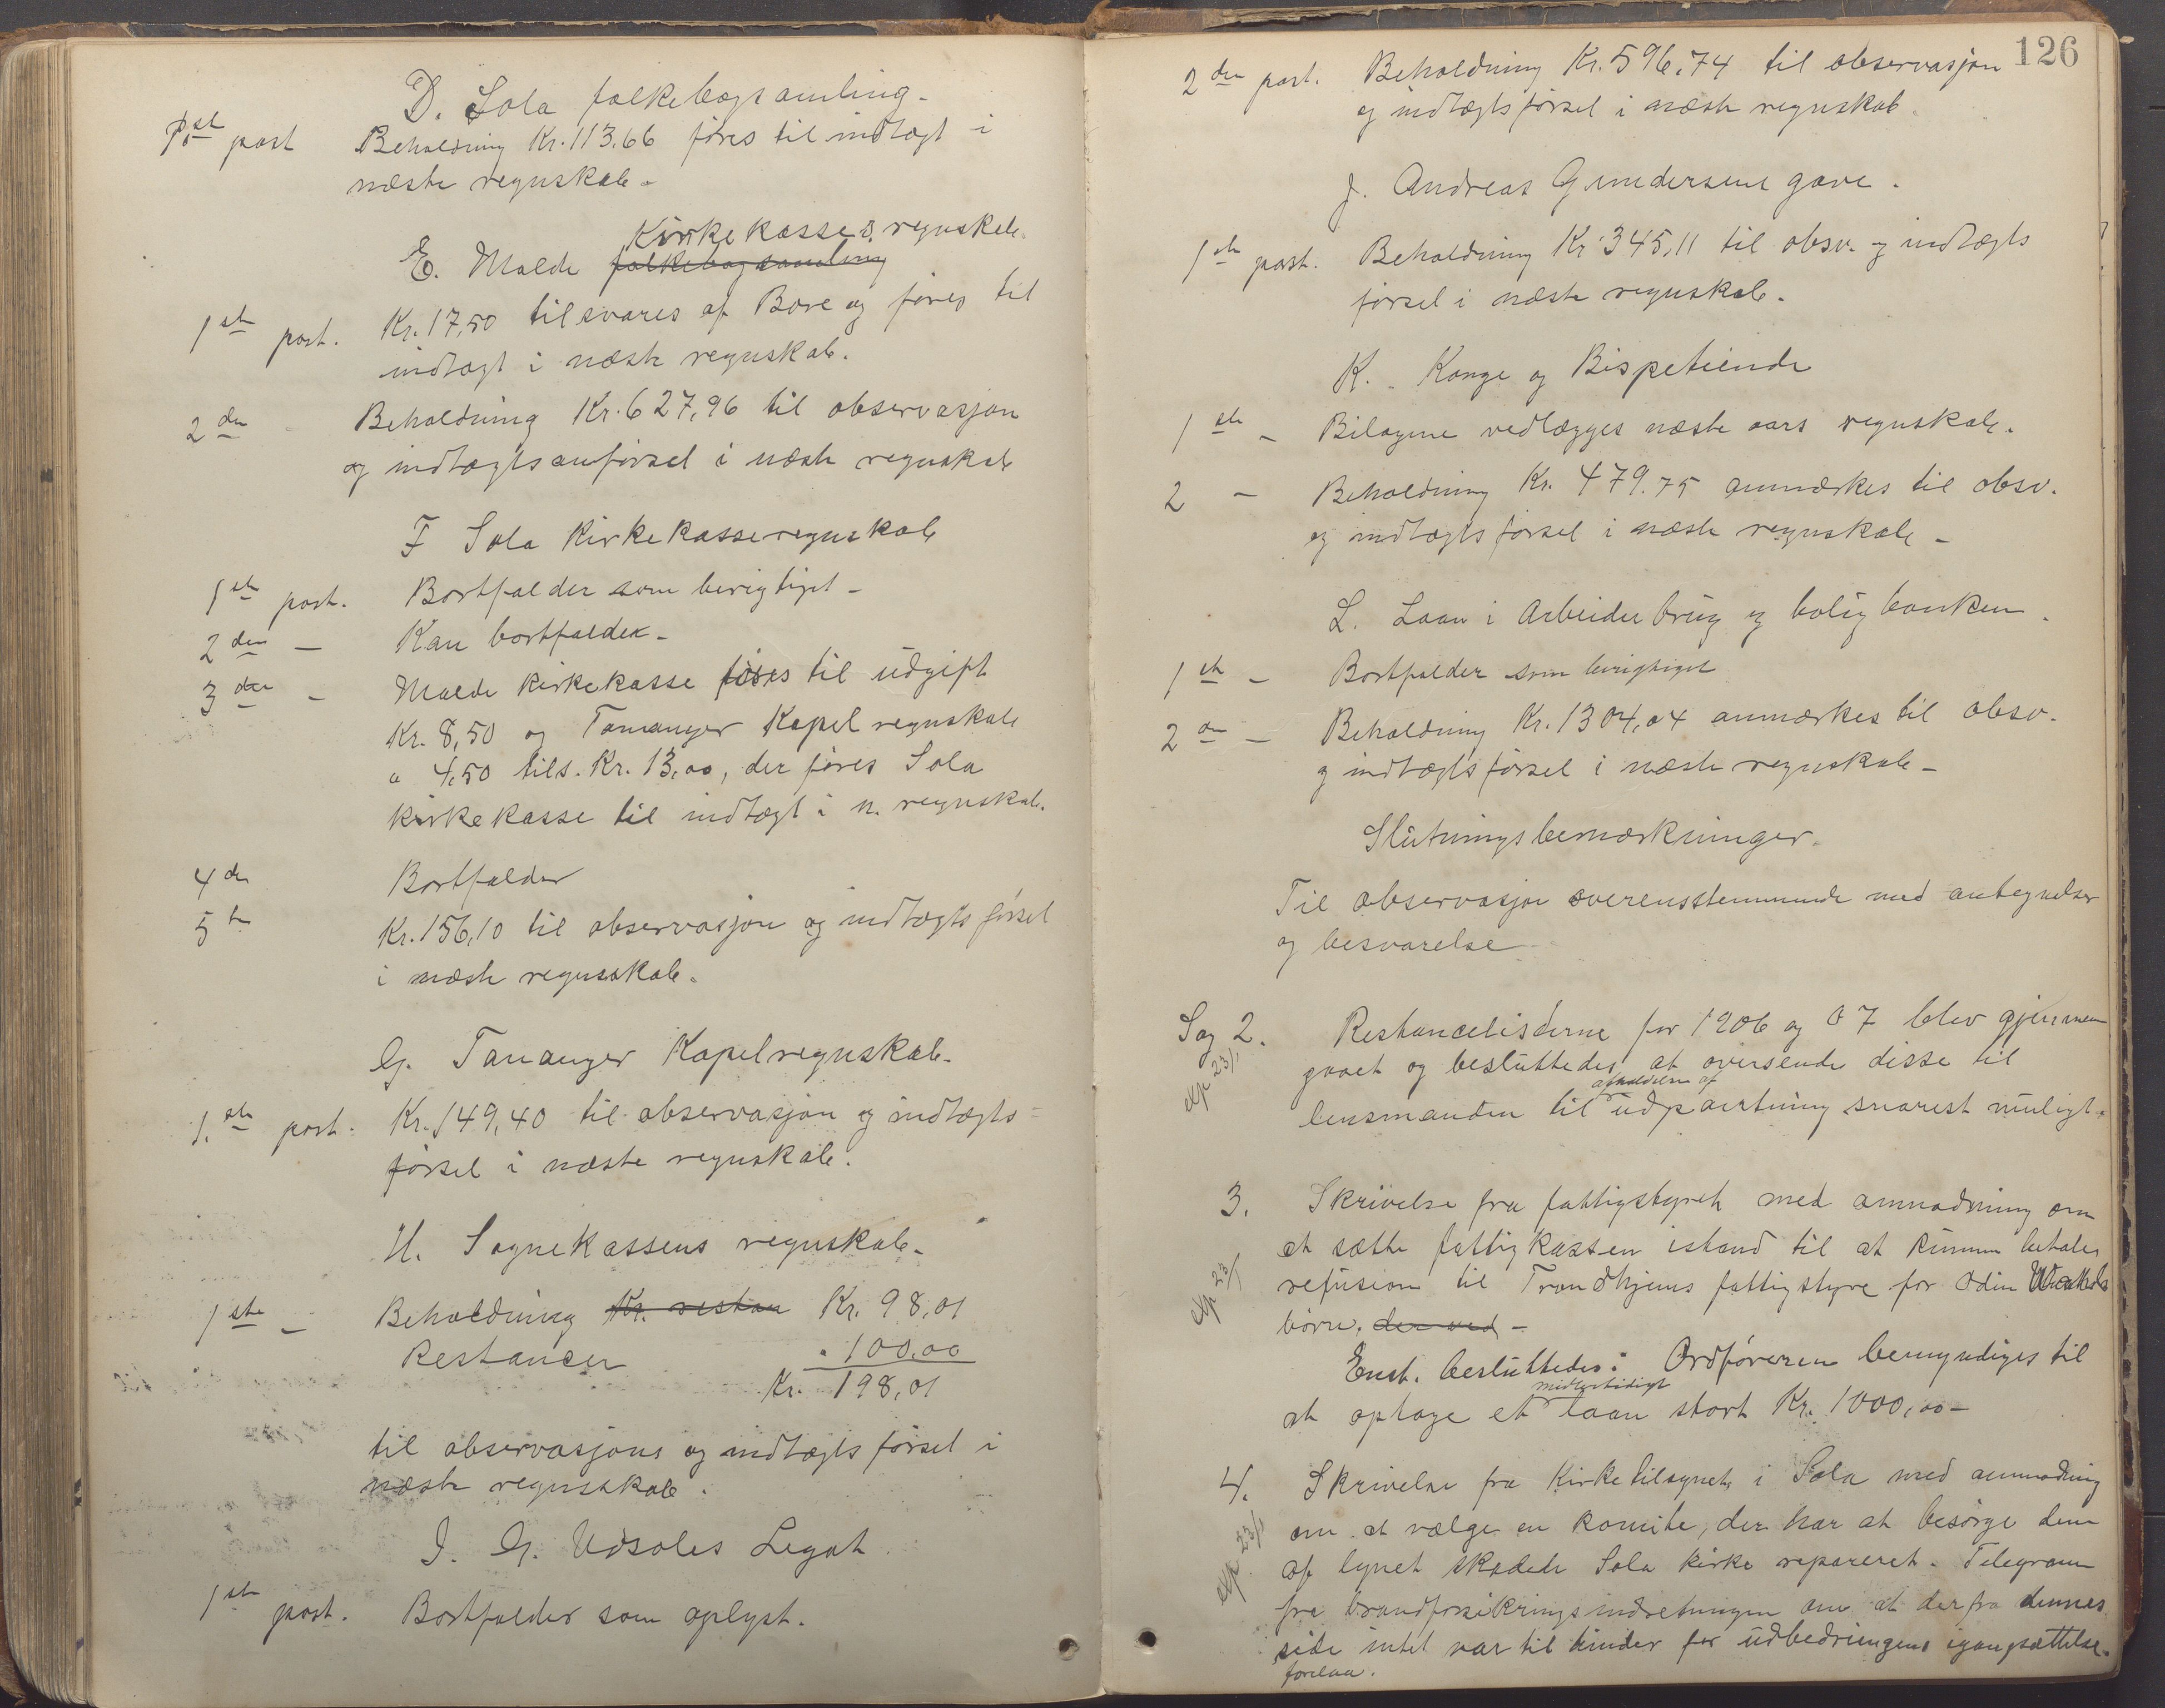 D. Sola folkebogsamling.
1ste post Beholdning Kr. 113,66 føres til indtægt i
næste regnskab.
Kirkekasses regnskab.
E. Malde folkebogsamling
1ste post. Kr. 17,50 tilsvares af Bore og føres til
indtægt i næste regnskab.
2den - Beholdning Kr. 627,96 til observasjon
og indtægtsanførsel i næste regnskab
F Sola Kirkekasseregnskab
1ste post. Bortfalder som berigtiget -
2den - Kan bortfalder -
3die - Malde Kirkekasse føres til udgift
Kr. 8,50 og Tananger Kapel regnskab
" 4,50 tils. Kr. 13,00, der føres Sola
kirkekasse til indtægt i n. regnskab.
4de Bortfalder
5te Kr. 156,10 til observasjon og indtægtsførsel
i næste regnskab.
G. Tananger Kapelregnskab.
1ste post. Kr. 149,40 til observasjon og indtægts=
førsel i næste regnskab.
H. Sognekassens regnskab.
1ste - Beholdning Kr. restan Kr. 98,01
Restancer " 100,00
Kr. 198,01
til observasjons og indtægtsførsel i
næste regnskab.
I. G. Udsolas Legat
1ste post. Bortfalder som oplyst.
126
2den post. Beholdning Kr. 596,74 til observasjon
og indtægtsførsel i næste regnskab.
J. Andreas Gundersens gave.
1ste post. Beholdning Kr 345,11 til obsv. og indtægts
førsel i næste regnskab.
K. Konge og Bispetiende
1ste - Bilagene vedlægges næste aars regnskab.
2 - Beholdning Kr. 479.75 anmærkes til obsv.
og indtægtsførsel i næste regnskab -
L. Laan i Arbeiderbrug og boligbanken.
1ste - Bortfalder som berigtiget
2den - Beholdning Kr. 1304,04 anmærkes til obsv.
og indtægtsførsel i næste regnskab -
Slutningsbemærkninger.
Til observasjon overensstemmende med antegnelser
og besvarelse
Sag 2. Restancelisterne for 1906 og 07 blev gjennem
exp 23/1
gaaet og besluttedes at oversende disse til
afholdelse af
lensmanden til udpantning snarest muligt.
3. Skrivelse fra fattigstyret med anmodning om
at sætte fattigkassen istand til at kunne betale
exp 23/1
refusion til Trondhjems fattigstyre for Odin
børn. der ved -
Enst. besluttedes: Ordføreren bemyndiges til
midlertidigt
at optage et laan stort Kr. 1000,00 -
4. Skrivelse fra Kirketilsynet i Sola med anmodning
om at vælge en komite, der har at besørge den
exp 23/1
af lynet skadede Sola kirke repareret. Telegram
fra brandforsikringsindretningen om at der fra dennes
side intet var til hinder for udbedringens igangsættelse.
forelaa.